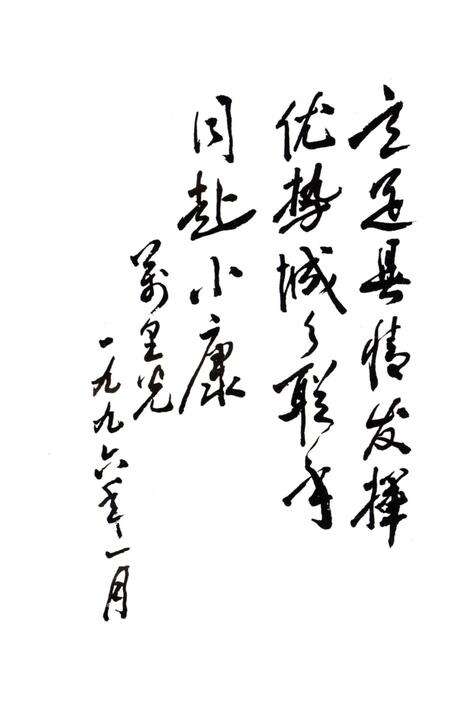 立足县情发挥
优势城乡联手
同赴小康
萬里光
一九九六年一月